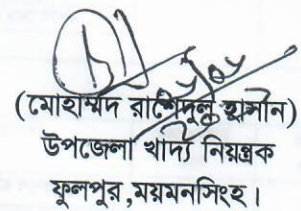 (মোহাম্মদ রাশেদুল হাসান)
উপজেলা খাদ্য নিয়ন্ত্রক
ফুলপুর,ময়মনসিংহ।